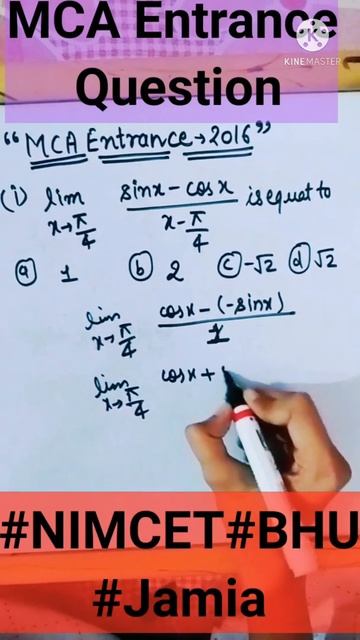 MCA Entrance
KINEMASTER
Question
"MCA Entrance → 2016"
(i) lim x→π/4 sinx - cosx / x - π/4 is equal to
(a) 1 (b) 2 (c) -√2 (d) √2
lim x→π/4 cosx - (-sinx) / 1
lim x→π/4 cosx +
#NIMCET#BHU
#Jamia